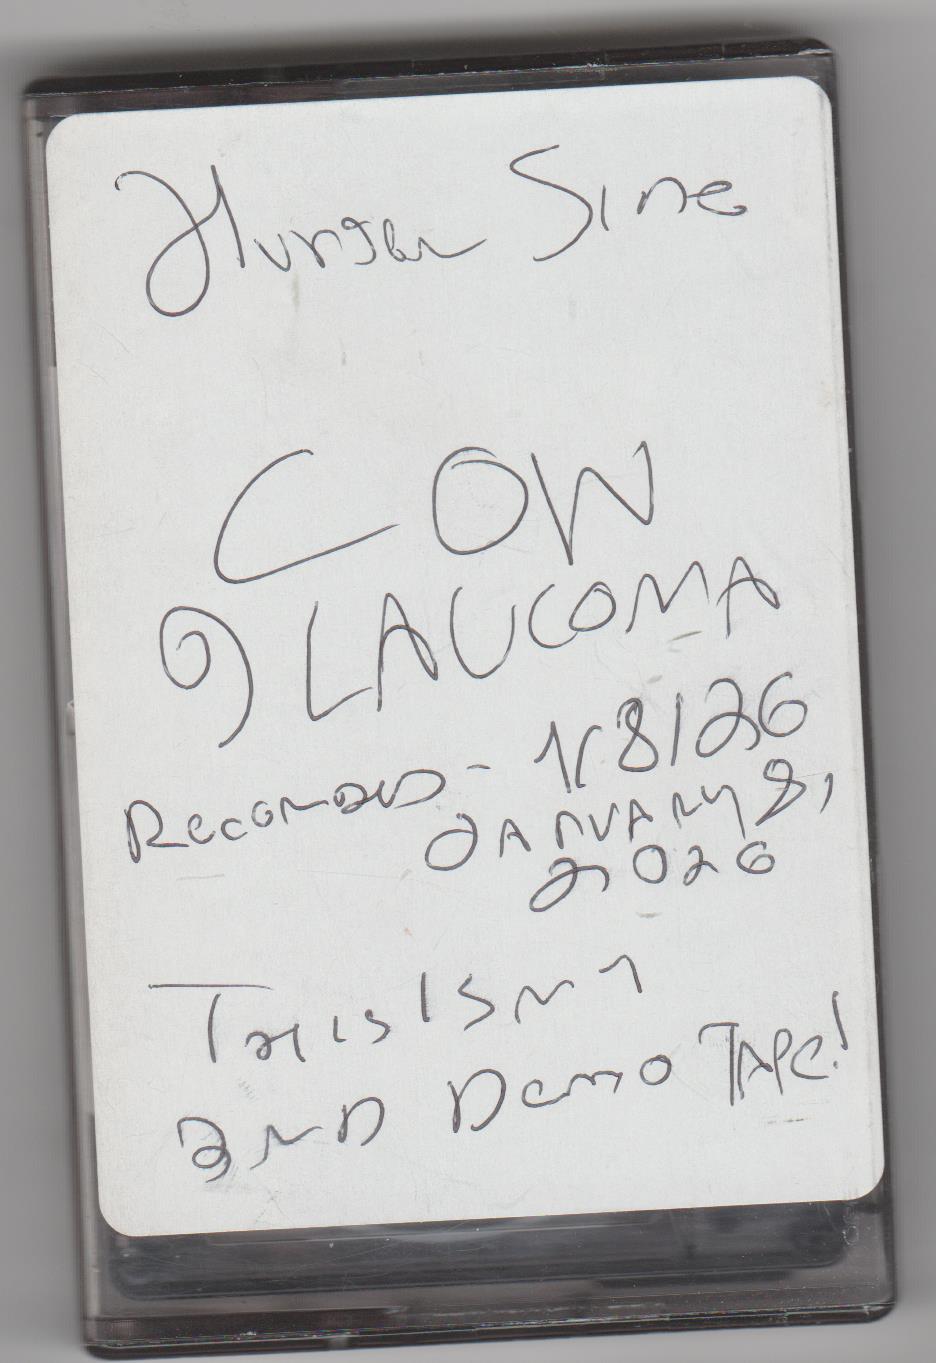 Hunter Sine
COW
GLAUCOMA
RECORDED - 1/8/26
JANUARY 8,
2026
THIS IS MY
2ND DEMO TAPE!